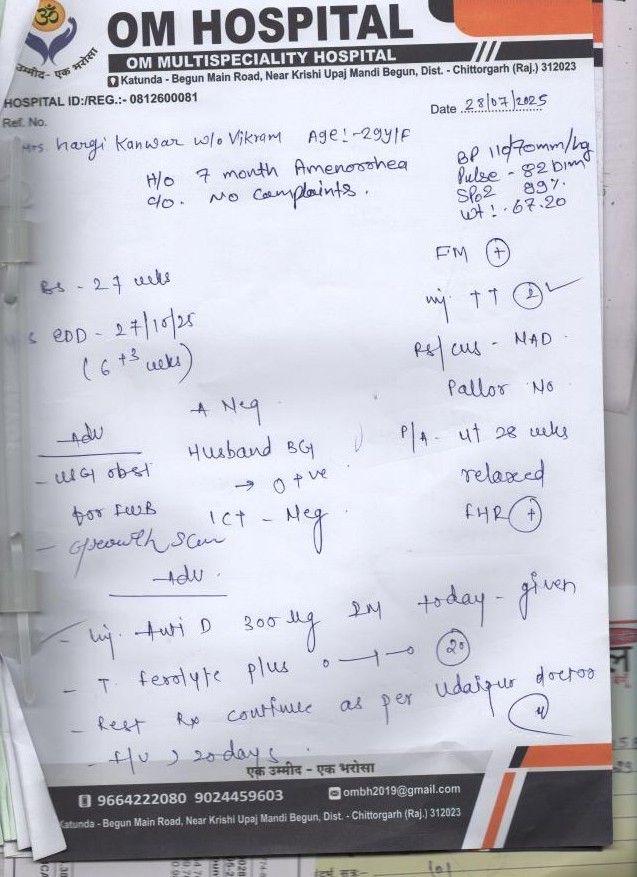 ॐ
उम्मीद - एक भरोसा
OM HOSPITAL
OM MULTISPECIALITY HOSPITAL
Katunda - Begun Main Road, Near Krishi Upaj Mandi Begun, Dist. - Chittorgarh (Raj.) 312023
HOSPITAL ID:/REG.:- 0812600081
Ref. No.
Date 28/07/2025
Mrs. hargi Kanwar w/o Vikram Age:-29y/F
H/o 7 month Amenorrhea
c/o. No Complaints.
BP 110/70mm/hg
Pulse - 82 b/m
SPO2 99%
wt:. 67.20
FM (+)
Inj. TT (2) ✓
RS/CVS - NAD.
Pallor No
P/A - ut 28 weeks
relaxed
FHR (+)
- 27 weeks
EDD - 27/10/25
(6+3 weeks)
A Neg
Husband BG
→ O +ve
ICT - Neg
Adv
- USG obst
for FWB
- Growth Scan
Adv.
- Inj. Anti D 300 ug IM today - given
- T. ferolyte plus 0—1—0 (20)
- Rest Rx continue as per Udaipur doctor
- f/u 20 days.
एक उम्मीद - एक भरोसा
9664222080 9024459603
ombh2019@gmail.com
Katunda - Begun Main Road, Near Krishi Upaj Mandi Begun, Dist. - Chittorgarh (Raj.) 312023